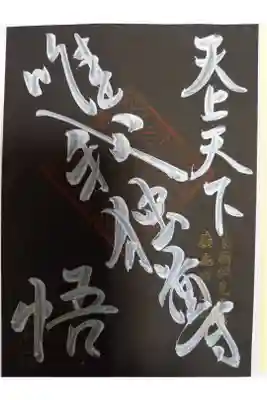 天上天下
唯我独尊
悟